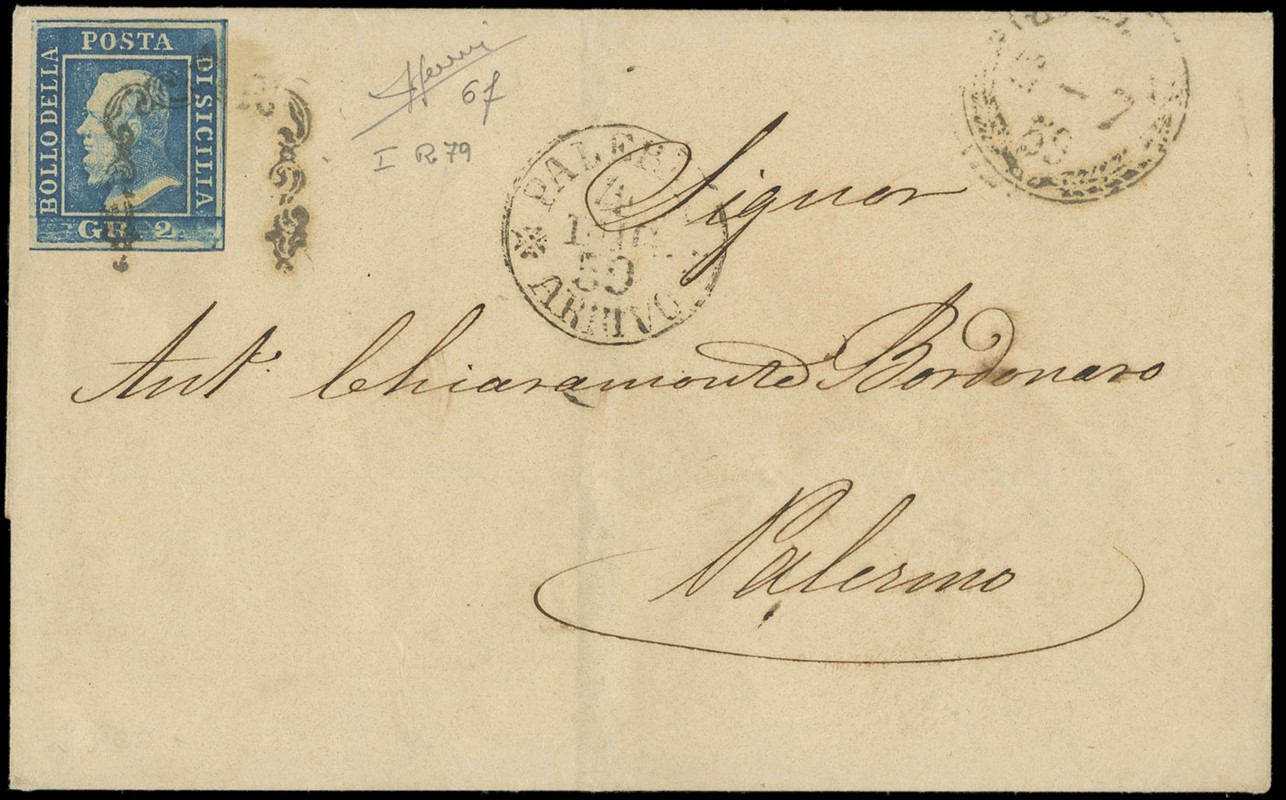 POSTA
BOLLO DELLA
DI SICILIA
GR. 2
6f
I R 79
PALER
4
LUG
59
ARRIVO
3 - 7
59
Signor
Ant. Chiaramonte Bordonaro
Palermo